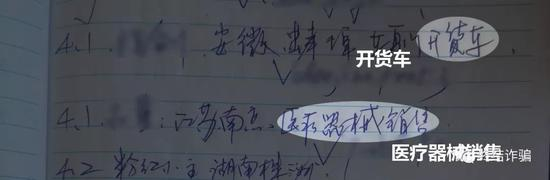 4.1 安徽蚌埠 开货车
开货车
4.1 江苏南京、医疗器械销售
医疗器械销售
4.2 粉红小主 湖南株洲
诈骗